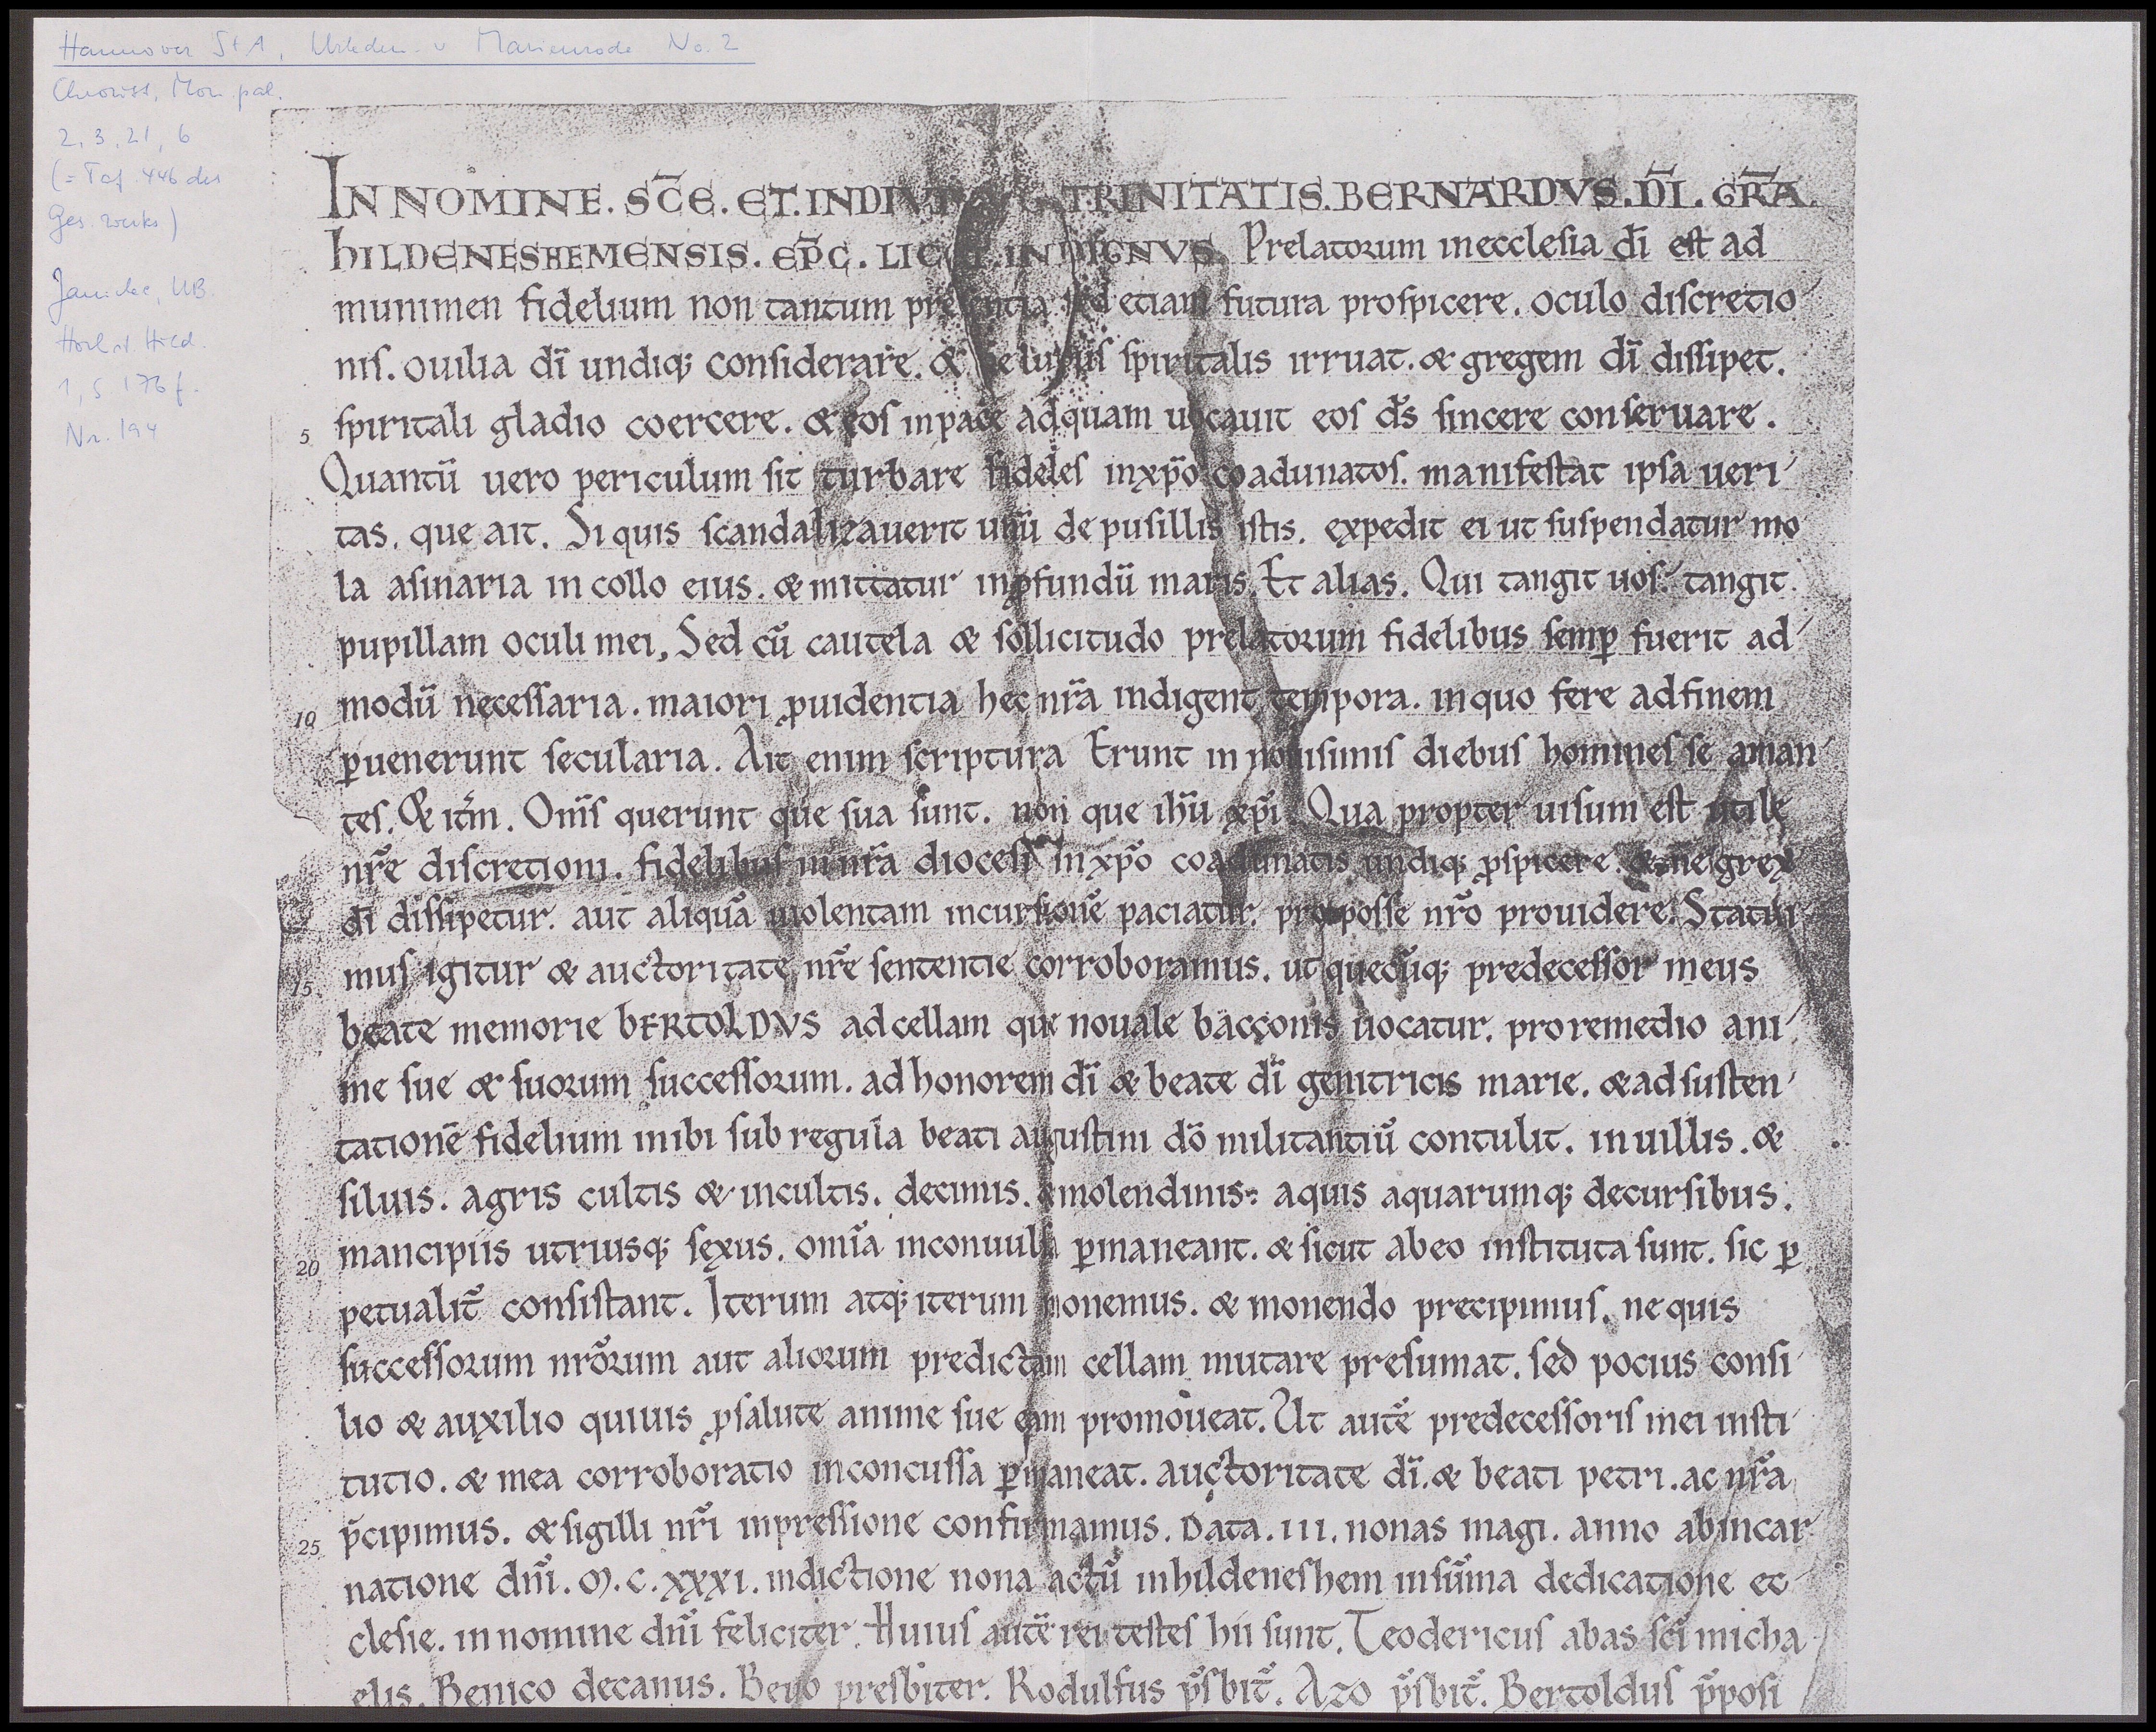 Hannover StA, Urkden. v Marienrode No. 2
Chroust, Mon. pal.
2, 3, 21, 6
(= Taf. 446 des
Ges. werks)
Janicke, UB.
Hochst. Hild.
1, S 176 f.
Nr. 194
IN NOMINE. SC̄E. ET. INDIVIDVE TRINITATIS. BERNARDVS. D̄I. GR̄A.
hILDENESHEMENSIS. EP̄C. LICET. INDIGNVS. Prelatorum inecclesia dī est ad
munimen fidelium non tantum presentia sed etiam futura prospicere. oculo discretio
nis. ouilia dī undiq; considerare. & ne lupus spiritalis irruat. & gregem dī dissipet.
5 spiritali gladio coercere. & eos inpace adquam uocauit eos ds̄ sincere conseruare.
Quantū uero periculum sit turbare fideles inxp̄o coadunatos. manifestat ipsa ueri
tas. que ait. Si quis scandalizauerit unū de pusillis istis. expedit ei ut suspendatur mo
la asinaria in collo eius. & mittatur inꝓfundū maris. Et alias. Qui tangit uos. tangit
pupillam oculi mei. Sed cū cautela & sollicitudo prelatorum fidelibus semꝑ fuerit ad
10 modū necessaria. maiori ꝓuidentia hec nr̄a indigent tempora. inquo fere adfinem
ꝑuenerunt secularia. Ait enim scriptura Erunt in nouisimis diebus homines se aman
tes. & itm̄. Om̄s querunt que sua sunt. non que ihū xp̄i. Qua propter uisum est utile
nr̄e discretioni. fidelibus in nr̄a diocesi inxp̄o coadunatis undiq; ꝓspicere. & ne grex
dī dissipetur. aut aliquā uiolentam incursionē paciatur. pro posse nr̄o prouidere. Statui
15 mus igitur & auctoritate nr̄e sententie corroboramus. ut quecūq; predecessor meus
beate memorie bERTOLDVS adcellam que nouale bacconis uocatur. proremedio ani
me sue & suorum successorum. ad honorem dī & beate dī genitricis marie. & ad susten
tationē fidelium inibi sub regula beati augustini dō militantiū contulit. in uillis. &
siluis. agris cultis & incultis. decimis. & molendinis. aquis aquarumq; decursibus.
20 mancipiis utriusq; sexus. omīa inconuulsa ꝑmaneant. & sicut abeo instituta sunt. sic ꝑ
petualit̄ consistant. Iterum atq; iterum monemus. & monendo precipimus. ne quis
successorum nr̄orum aut aliorum predictam cellam mutare presumat. sed pocius consi
lio & auxilio quiuis ꝓsalute anime sue eam promoueat. Ut autē predecessoris mei insti
tutio. & mea corroboratio inconcussa ꝑmaneat. auctoritate dī. & beati petri. ac nr̄a
25 p̄cipimus. & sigilli nr̄i inpressione confirmamus. Data. III. nonas magi. anno abincar
natione dn̄i. M. C. XXXI. indictione nona actū inhildeneshem insūma dedicatione ec
clesie. in nomine dn̄i feliciter. Huius autē rei testes hii sunt. Teodericus abas sc̄i micha
elis. Benico decanus. Beno presbiter. Rodulfus p̄sbit̄. Azo p̄sbit̄. Bertoldus p̄posi